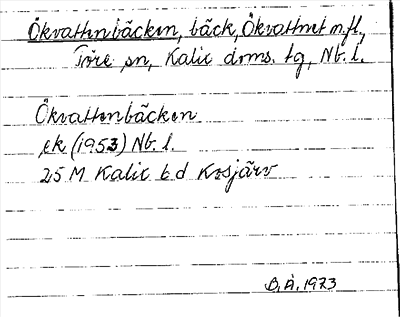 Ökvattenbäcken, bäck, Ökvattnet m.fl.,
Töre sn, Kalix doms. tg, Nb. l.
Ökvattenbäcken
ek (1953) Nb. l.
25 M Kalix bd Kosjärv
B.Å. 1973